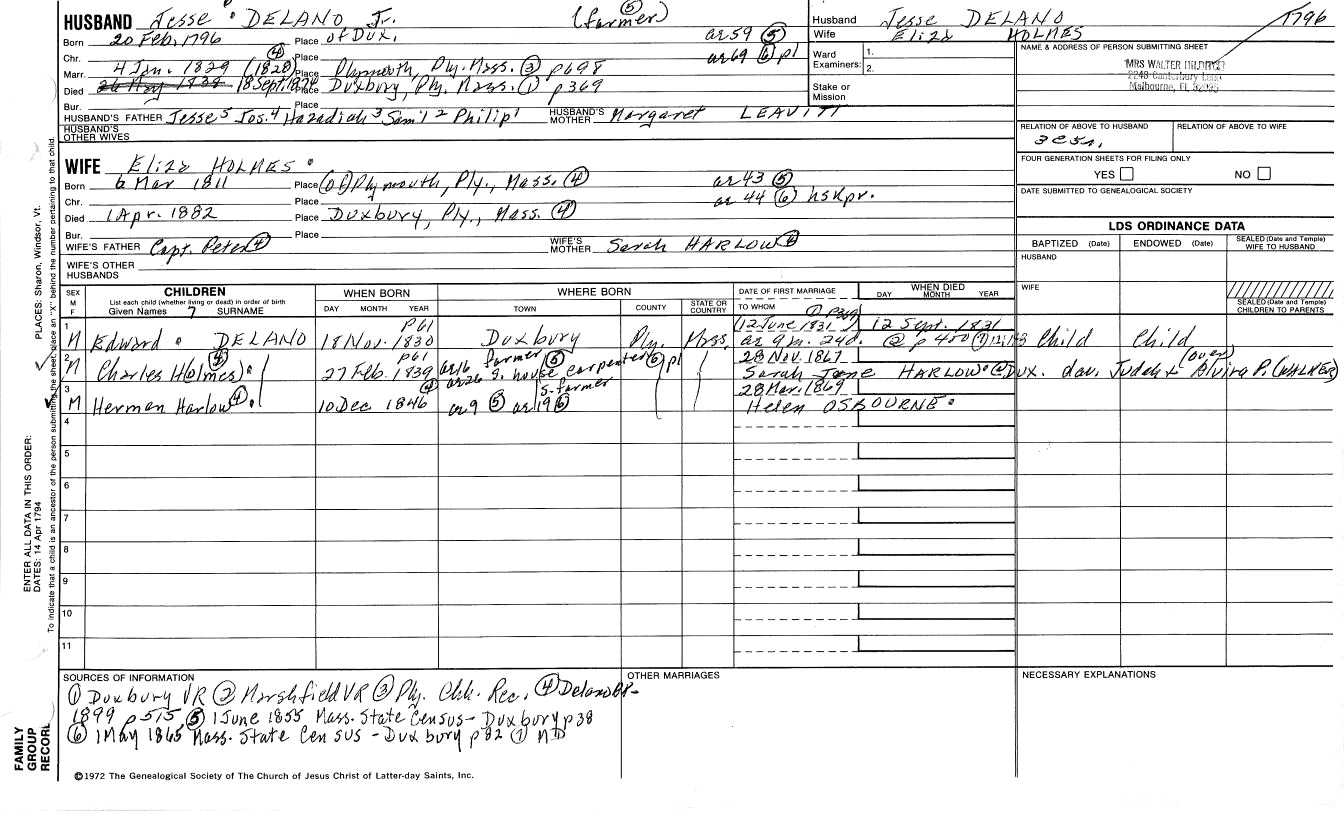 HUSBAND Jesse DELANO Jr. (farmer) ⑤
Born 20 Feb. 1796 Place of Dux. ar 59 ⑤
Chr. Place ar 69 ⑥ p1
Marr. 4 Jan. 1829 (1828) ④ Place Plymouth, Ply. Mass. ③ p698
Died 18 Sept. Place Duxbury, Ply. Mass. ① p369
Bur. Place
HUSBAND'S FATHER Jesse 5 Jos. 4 Hazadiah 3 Sam'l 2 Philip 1 HUSBAND'S MOTHER Margaret LEAVITT
HUSBAND'S OTHER WIVES
WIFE Eliza HOLMES
Born 6 Mar 1811 Place (of) Plymouth, Ply., Mass. ④ ar 43 ⑤
Chr. Place ar 44 ⑥ hskpr.
Died 1 Apr. 1882 Place Duxbury, Ply., Mass. ④
Bur. Place
WIFE'S FATHER Capt. Peter ④ WIFE'S MOTHER Sarah HARLOW ④
WIFE'S OTHER HUSBANDS
Husband Jesse DELANO 1796
Wife Eliza HOLMES
Ward Examiners: 1.
2.
Stake or Mission
NAME & ADDRESS OF PERSON SUBMITTING SHEET
MRS WALTER
2248 Canterbury Lane
Melbourne, FL 32935
RELATION OF ABOVE TO HUSBAND RELATION OF ABOVE TO WIFE
FOUR GENERATION SHEETS FOR FILING ONLY
YES NO
DATE SUBMITTED TO GENEALOGICAL SOCIETY
LDS ORDINANCE DATA
BAPTIZED (Date) ENDOWED (Date) SEALED (Date and Temple) WIFE TO HUSBAND
HUSBAND
WIFE
SEALED (Date and Temple) CHILDREN TO PARENTS
SEX M F CHILDREN WHEN BORN WHERE BORN DATE OF FIRST MARRIAGE WHEN DIED
List each child (whether living or dead) in order of birth
Given Names 7 SURNAME DAY MONTH YEAR TOWN COUNTY STATE OR COUNTRY TO WHOM DAY MONTH YEAR
① p369
p61 (12 June 1831) 12 Sept. 1831
1 M Edward DELANO 18 Nov. 1830 Duxbury Ply. Mass. ar 9m. 24d. Child Child
p61 ar 16 farmer ⑤ 28 Nov. 1867 (over)
2 M Charles H(olmes) ④ 27 Feb. 1839 ar 26 house carpenter ⑥ p1 Sarah Jane HARLOW Dux. dau. Judah & P. (WALKER)
S-farmer 28 Mar. 1869
3 M Herman Harlow ④ 10 Dec. 1846 ④ ar 9 ⑤ ar 19 ⑥ Helen OSBOURNE
4
5
6
7
8
9
10
11
SOURCES OF INFORMATION
① Duxbury VR ② Marshfield VR ③ Ply. Chh. Rec. ④ Delano
1899 p515, ⑤ 1 June 1855 Mass. State Census - Duxbury p38
⑥ 1 May 1865 Mass. State Census - Duxbury p82 ⑦ MD
OTHER MARRIAGES
NECESSARY EXPLANATIONS
©1972 The Genealogical Society of The Church of Jesus Christ of Latter-day Saints, Inc.
FAMILY GROUP RECORD
ENTER ALL DATA IN THIS ORDER:
DATES: 14 Apr 1794
PLACES: Sharon, Windsor, Vt.
To indicate that a child is an ancestor of the person submitting the sheet, place an "X" behind the number pertaining to that child.